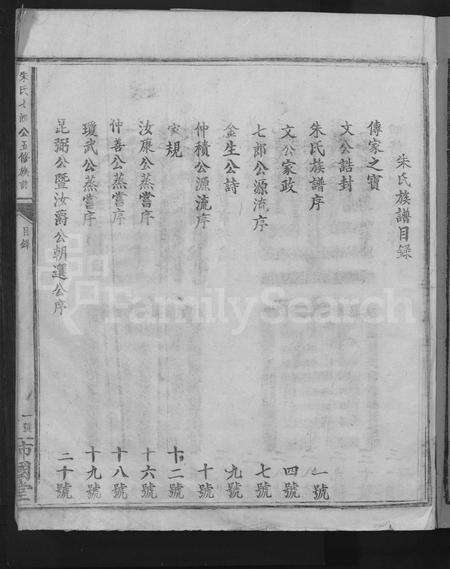 朱氏族譜目錄
傳家之寶
文公誥封
朱氏族譜序 一號
文公家政 四號
七郎公源流序 七號
金生公詩 九號
仲積公源流序 十號
家規 十二號
汝康公蒸嘗序 十六號
仲善公蒸嘗序 十八號
瓊武公蒸嘗序 十九號
昆弼公暨汝爵公朝選公序 二十號
目錄
一號
FamilySearch